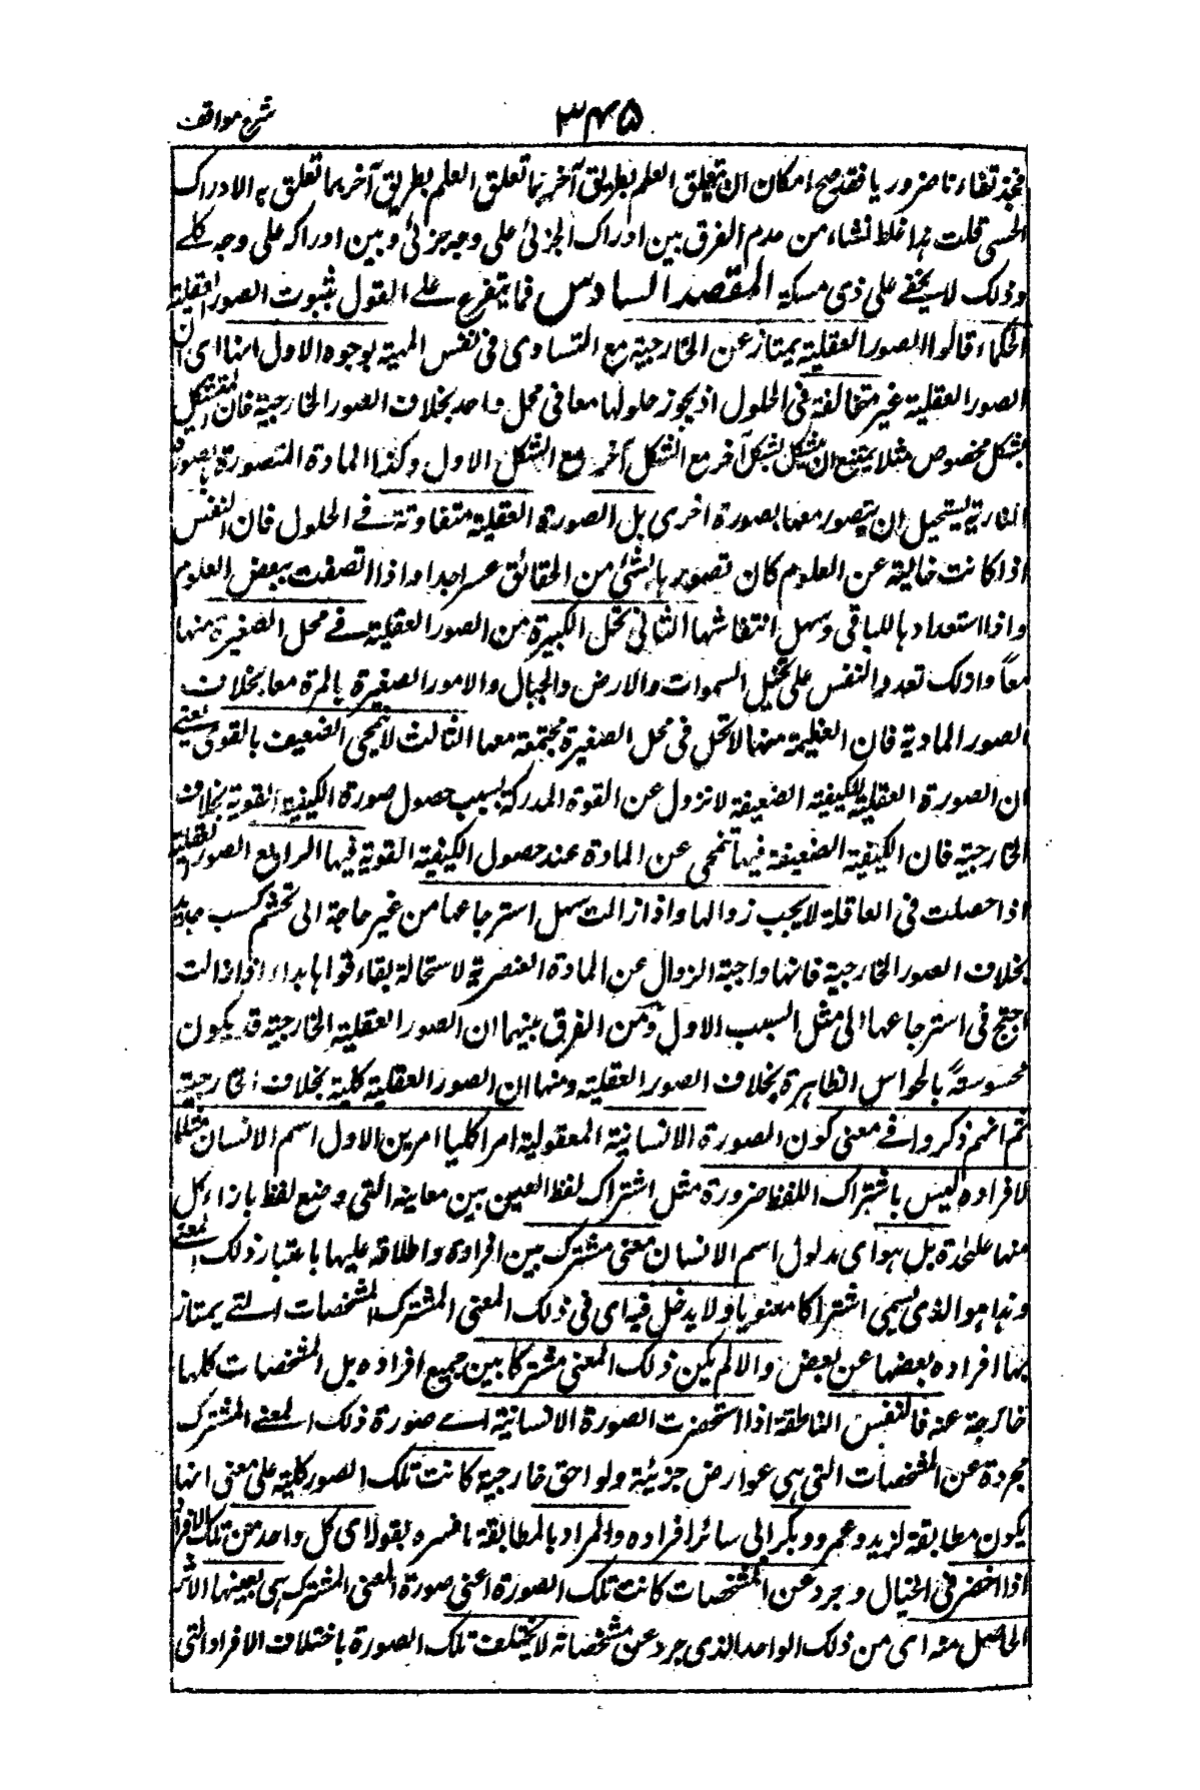 شرح مواقف
۳۴۵
فنجد تفاوتا ضروريا فقد صح امكان ان يتعلق العلم بطريق آخر بما تعلق العلم بطريق آخر بما تعلق به الادراك
الحسى قلت هذا غلط نشاء من عدم الفرق بين ادراك الجزئى على وجه جزئى وبين ادراكه على وجه كلے
وذلك لا يخفے على ذى مسكة المقصد السادس فما يتفرع علے القول بثبوت الصور العقلية
الحكماء قالوا الصور العقلية يمتاز عن الخارجية مع التساوى فى نفس المهية بوجوه الاول انها اى ان
الصور العقلية غير متخالفة فى الحلول اذ يجوز حلولها معا فى محل واحد بخلاف الصور الخارجية فان المتشكل
بشكل مخصوص مثلا يمتنع ان يتشكل بشكل آخر مع الشكل الاول وكذا المادة المتصورة بصورة
النارية يستحيل ان يتصور معها بصورة اخرى بل الصورة العقلية متفاوتة فے الحلول فان النفس
اذا كانت خالية عن العلوم كان تصورها بشئ من الحقائق عسرا جدا واذا اتصفت ببعض العلوم
واذا استعدادها للباقى وسهل انتقاشها الثانى تحل الكبيرة من الصور العقلية فے محل الصغيرة منها
معاً ولذلك تقدر النفس على تخيل السموات والارض والجبال والامور الصغيرة بالمرة معا بخلاف
الصور المادية فان العظيمة منها لا تحل فى محل الصغيرة مجتمعة معها الثالث لا ينمحى الضعيف بالقوى يعنے
ان الصورة العقلية للكيفية الضعيفة لا تزول عن القوة المدركة بسبب حصول صورة الكيفية القوية بخلاف
الخارجية فان الكيفية الضعيفة فيها تنمحى عن المادة عند حصول الكيفية القوية فيها الرابع الصور العقلية
اذا حصلت فى العاقلة لا يجب زوالها واذا زالت سهل استرجاعها من غير حاجة الى تجشم كسب جديد
بخلاف الصور الخارجية فانها واجبة الزوال عن المادة العنصرية لاستحالة بقاء قواها بداء اذا زالت
احتيج فى استرجاعها الى مثل السبب الاول ومن الفرق بينهما ان الصور العقلية الخارجية قد يكون
محسوسةً بالحواس الظاهرة بخلاف الصور العقلية ومنها ان الصور العقلية كلية بخلاف الخارجية
ثم انهم ذكروا فے معنى كون الصورة الانسانية المعقولية امرا كليا امرين الاول اسم الانسان مثلا
لافراده ليس باشتراك اللفظ ضرورة مثل اشتراك لفظ العين بين معانيه التى وضع لفظ بازاء كل
منها علحدة بل هو اى مدلول اسم الانسان معنى مشترك بين افراده واطلاقه عليها باعتبار ذلك المعنے
وهذا هو الذى يسمى اشتراكا معنويا ولا يدخل فيه اى فى ذلك المعنى المشترك المشخصات التے يمتاز
بها افراده بعضها عن بعض والا لم يكن ذلك المعنى مشتركا بين جميع افراده بل المشخصات كلها
خارجة عنه فالنفس الناطقة اذا استحضرت الصورة الانسانية اے صورة ذلك المعنے المشترك
مجردة عن المشخصات التى هى عوارض جزئية ولواحق خارجية كانت تلك الصور كلية على معنى انها
يكون مطابقة لزيد وعمرو وبكر الى سائر افراده والمراد بالمطابقة ما فسره بقوله اى كل واحد من تلك الافراد
اذا احضر فى الخيال وجرد عن المشخصات كانت تلك الصورة اعنى صورة المعنى المشترك هى بعينها الاثر
الحاصل منه اى من ذلك الواحد الذى جرد عن مشخصاته لا يختلف تلك الصورة باختلاف الافراد التى